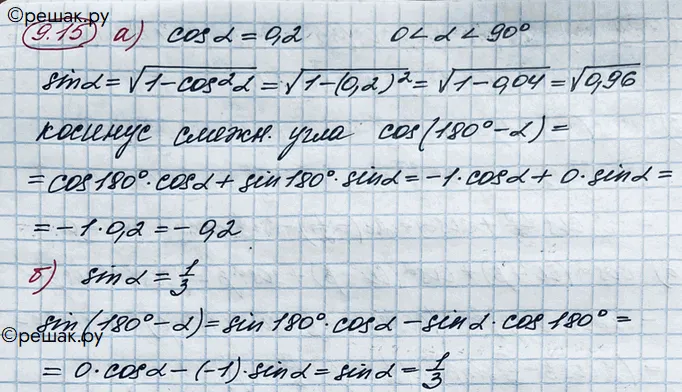 ©решак.ру
9.15 а) cosα = 0,2 0 < α < 90°
sinα = √(1-cos²α) = √(1-(0,2)²) = √(1-0,04) = √0,96
косинус смежн. угла cos(180°-α) =
= cos180°·cosα + sin180°·sinα = -1·cosα + 0·sinα =
= -1·0,2 = -0,2
б) sinα = 1/3
sin(180°-α) = sin180°·cosα - sinα·cos180° =
©решак.ру
= 0·cosα - (-1)·sinα = sinα = 1/3